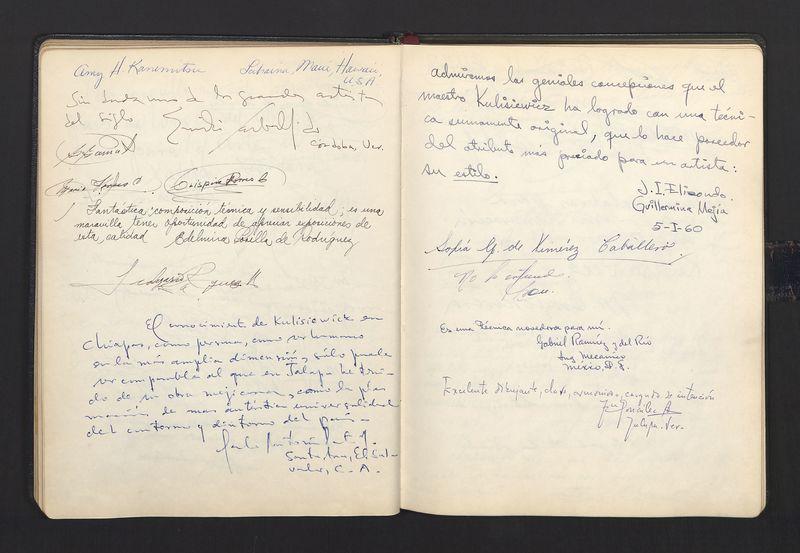 Amy H. Kanemitsu Lahaina, Maui, Hawaii,
U.S.A
Sin duda uno de los grandes artistas
del siglo
Córdoba, Ver.
Crispin
¡Fantástica composición técnica y sensibilidad; es una
maravilla tener oportunidad de apreciar exposiciones de
esta calidad Edelmira Bonilla de Rodríguez
El conocimiento de Kulisiewick en
Chiapas, como persona, como ser humano
en la más amplia dimensión y sólo puede
ser comparable al que en Jalapa he teni-
do de su obra mejicana, como la plas
mación de mas auténtica universalidad
del contorno y dintorno del país
Santa Ana, El Sal-
vador, C. A.
admiramos las geniales concepciones que el
maestro Kulisiewicz ha logrado con una técni-
ca sumamente original, que lo hace poseedor
del atributo más preciado para un artista:
su estilo.
J. I. Elizondo.
Guillermina Mejía
5-I-60
Sofía G. de Ximénez Caballero.
No lo entiendo.
Es una técnica novedosa para mí.
Gabriel Ramírez y del Río
Ing Mecánico
México, D. F.
Excelente dibujante, claro, armonioso, cargado de intención
González
Jalapa. Ver.